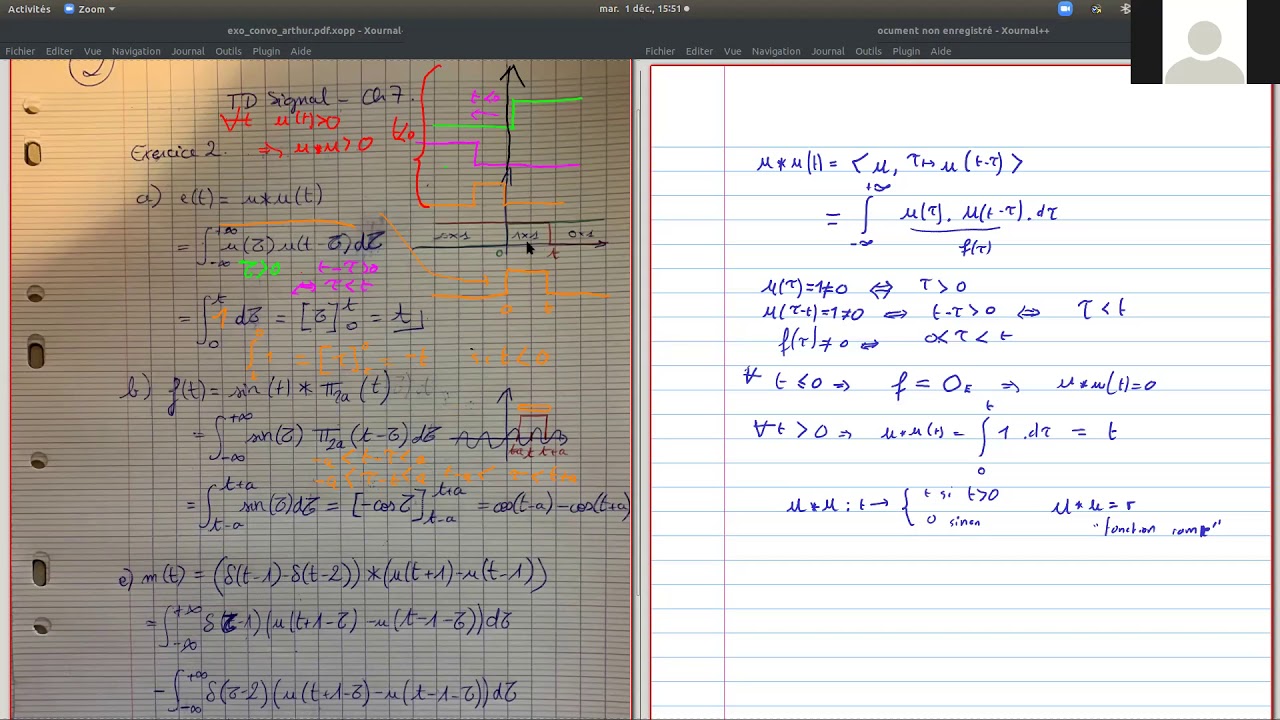 Activités Zoom mar. 1 déc., 15:51
exo_convo_arthur.pdf.xopp - Xournal
Fichier Editer Vue Navigation Journal Outils Plugin Aide
2
TD Signal - Ch 7.
∀t u(t)>0
⇒ u*u>0
Exercice 2.
t<0
a) e(t) = u*u(t)
= ∫_{-∞}^{+∞} u(τ)u(t-τ)dτ
τ>0 t-τ>0
⇔ τ<t
1x1 0x1
0 t
= ∫_0^t 1 dτ = [τ]_0^t = t
0
b) f(t) = sin(t) * π_{2a}(t)
= ∫_{-∞}^{+∞} sin(τ) π_{2a}(t-τ)dτ
t-a t t+a
= ∫_{t-a}^{t+a} sin(τ)dτ = [-cos τ]_{t-a}^{t+a} = cos(t-a)-cos(t+a)
e) m(t) = (δ(t-1)-δ(t-2))*(u(t+1)-u(t-1))
= ∫_{-∞}^{+∞} δ(τ-1)(u(t+1-τ)-u(t-1-τ))dτ
- ∫_{-∞}^{+∞} δ(τ-2)(u(t+1-τ)-u(t-1-τ))dτ
ocument non enregistré - Xournal++
Fichier Editer Vue Navigation Journal Outils Plugin Aide
u*u(t) = < u, τ↦ u(t-τ) >
= ∫_{-∞}^{+∞} u(τ). u(t-τ).dτ
f(τ)
u(τ)=1≠0 ⇔ τ>0
u(τ-t)=1≠0 ⇔ t-τ>0 ⇔ τ<t
f(τ)≠0 ⇔ 0<τ<t
∀ t≤0 ⇒ f = 0_E ⇒ u*u(t)=0
∀t>0 ⇒ u*u(t) = ∫_0^t 1.dτ = t
u*u : t → { t si t>0 u*u = r
0 sinon "fonction rampe"